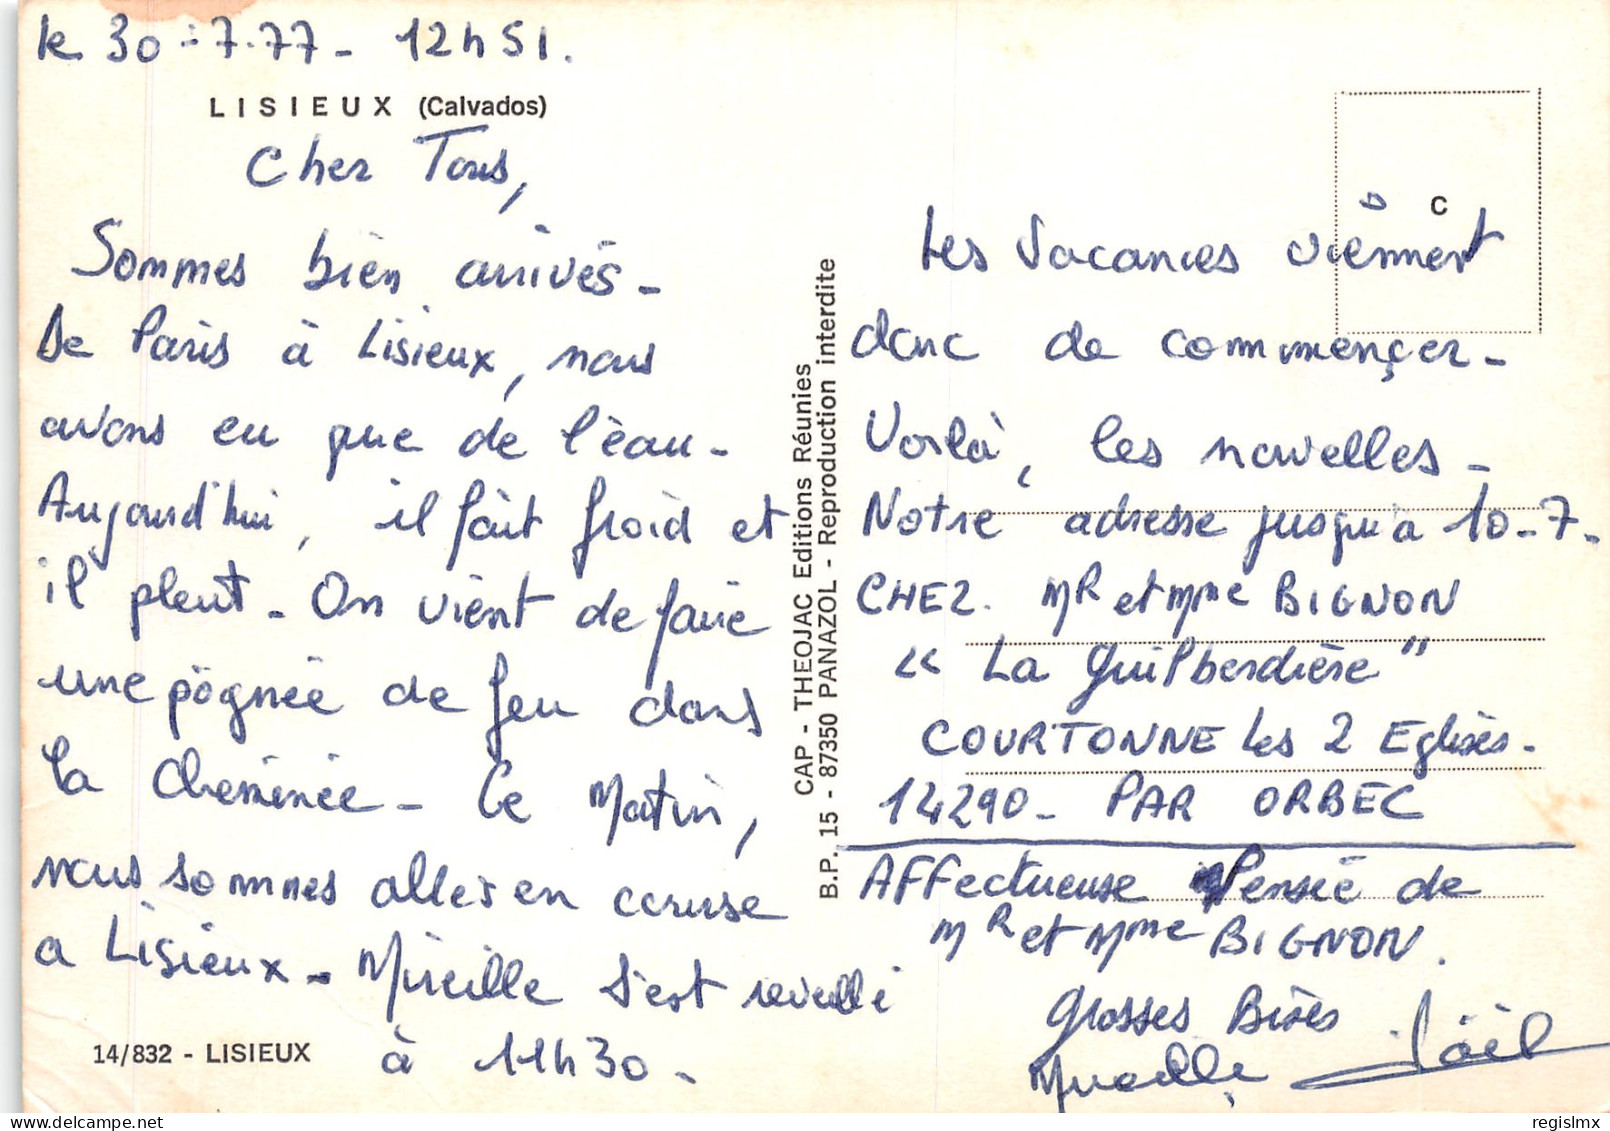 le 30-7-77- 12h51.
LISIEUX (Calvados)
Cher Tous,
Sommes bien arrivés -
De Paris à Lisieux, nous
avons eu que de l'eau -
Aujourd'hui, il fait froid et
il pleut - On vient de faire
une pognée de feu dans
la cheminée - Ce Matin,
nous sommes allés en course
a Lisieux - Mireille s'est reveillé
à 11h30 -
14/832 - LISIEUX
CAP - THEOJAC Editions Réunies
B.P. 15 - 87350 PANAZOL - Reproduction interdite
C
Les Vacances viennent
donc de commençer -
Voilà, les nouvelles -
Notre adresse jusqu'a 10-7-
CHEZ. MR et Mme BIGNON
« La Guilberdière "
COURTONNE les 2 Eglises -
14290 - PAR ORBEC
AFFectueuse Pensée de
MR et Mme BIGNON.
Grosses Bises
Mireille Joël
regislmx